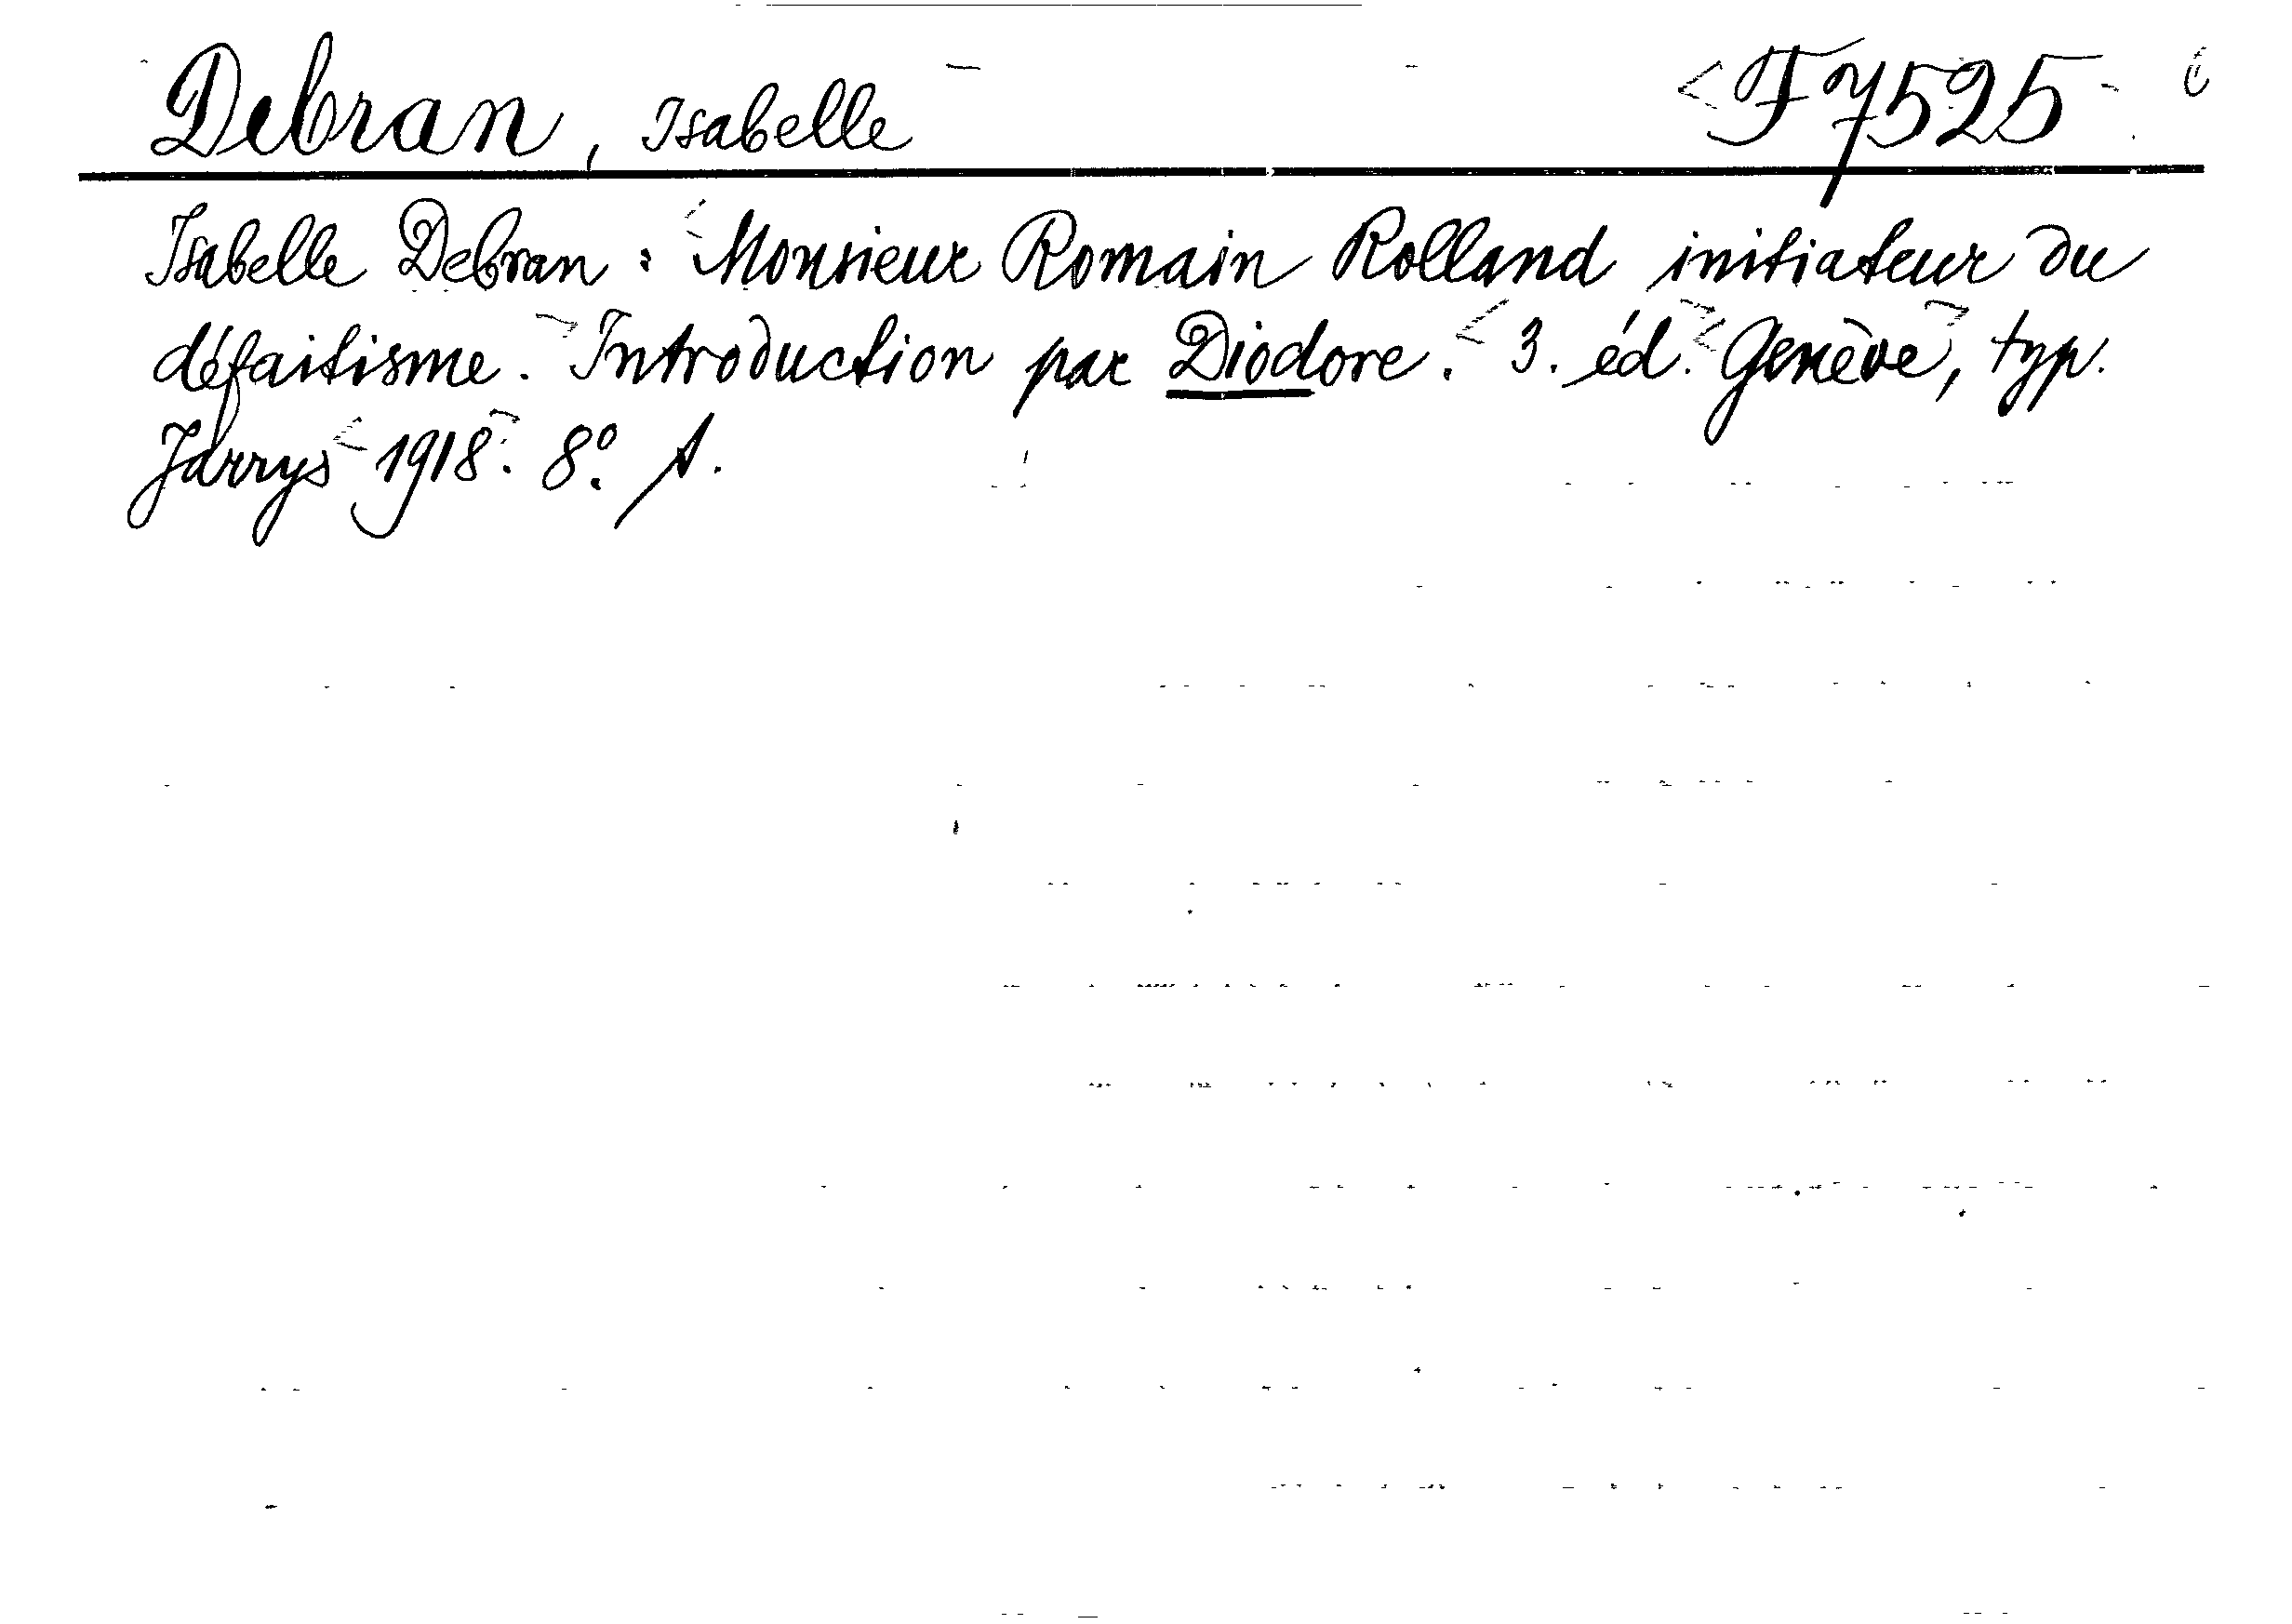 Debran, Isabelle F 7525
Isabelle Debran : Monsieur Romain Rolland initiateur du
défaitisme. Introduction par Diodore. 3. éd. Genève, typ.
Jarrys 1918. 8°. 1.